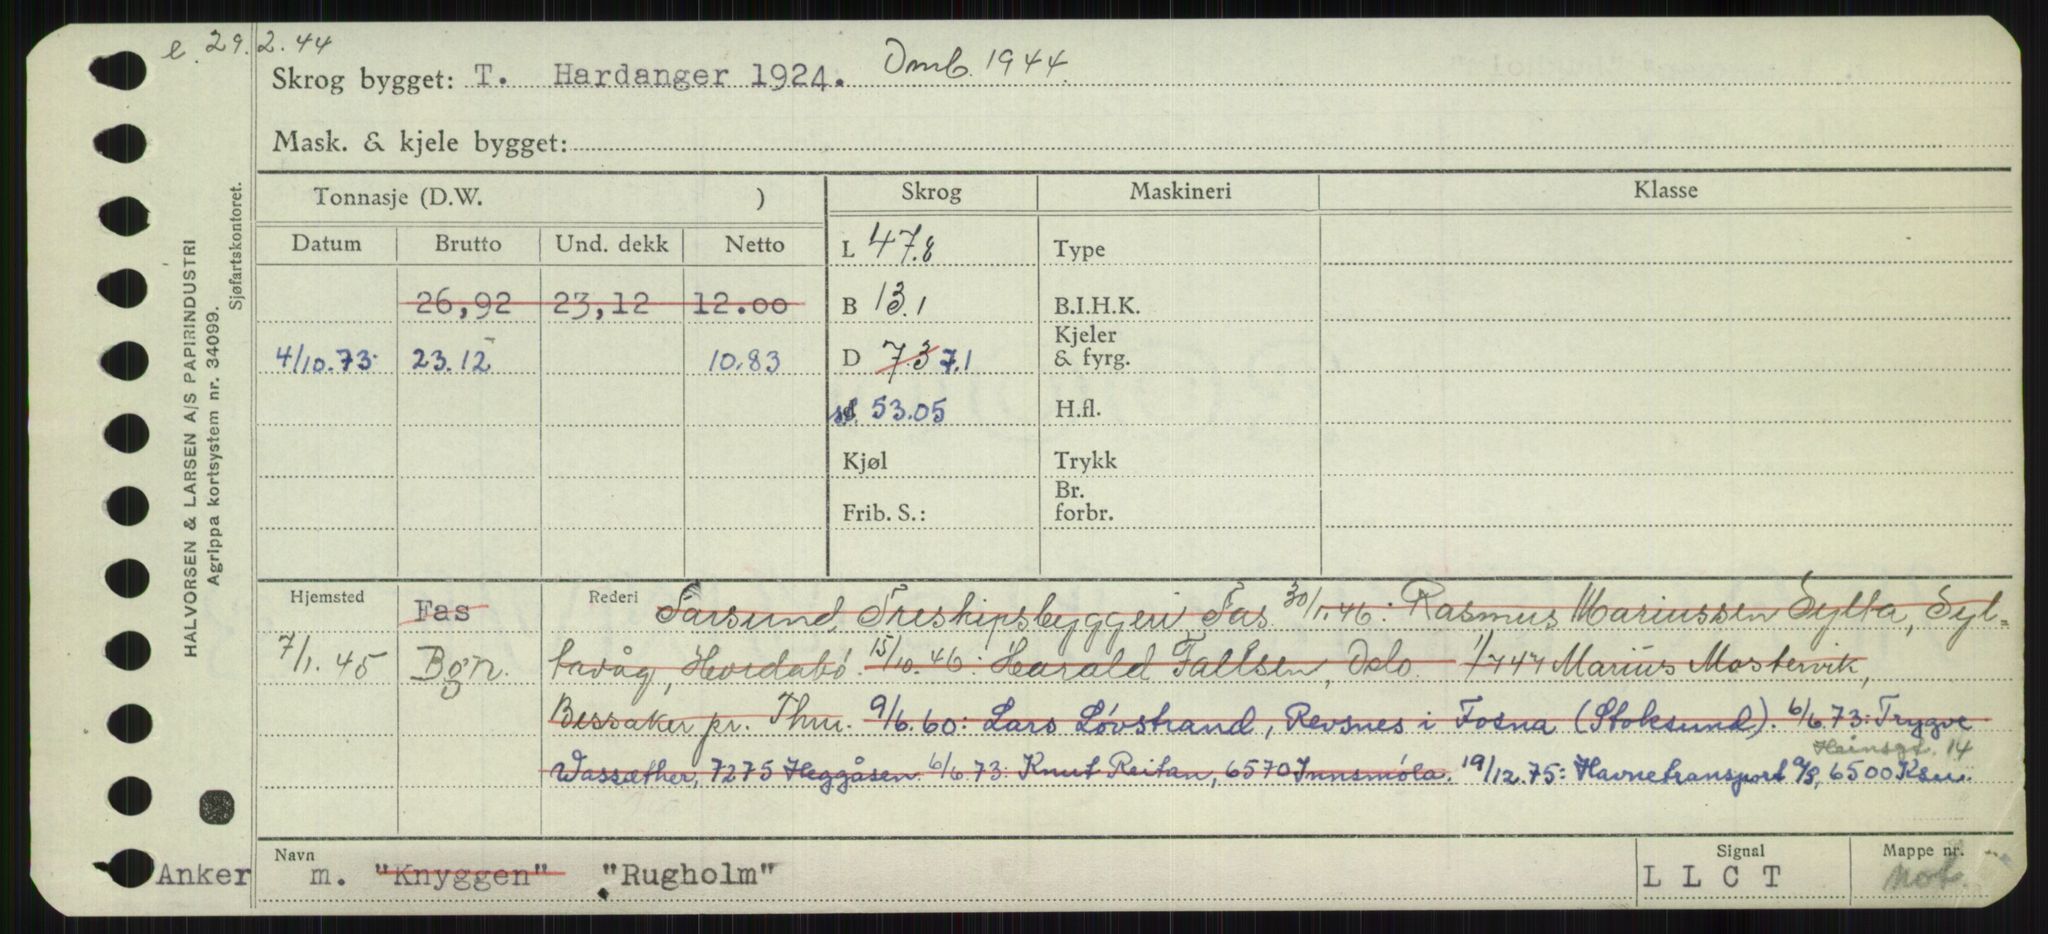 e 29.2.44
Skrog bygget: T. Hardanger 1924. Omb. 1944.
Mask. & kjele bygget:
Tonnasje (D.W. ) Skrog Maskineri Klasse
Datum Brutto Und. dekk Netto L 47.8 Type
26,92 23,12 12.00 B 13.1 B.I.H.K.
4/10.73 23.12 10.83 D 7.3 7.1 Kjeler & fyrg.
53.05 H.fl.
Kjøl Trykk
Frib. S.: Br. forbr.
Hjemsted Fas Rederi Farsund Treskipsbyggeri Fas 30/1.46: Rasmus Mariussen Sylta, Syl-
7/1.45 Bgn. tavåg, Hordabø. 15/10.46: Harald Faltsen, Oslo 1/747 Marius Mostervik,
Bessaker pr. Thm. 9/6.60: Lars Løvstrand, Revsnes i Fosna (Stoksund). 6/6.73: Trygve
Heinsgt. 14
Wassæther, 7275 Heggåsen. 6/6.73: Knut Reitan, 6570 Innsmøla. 19/12.75: Havnetransport A/S, 6500 Ksu.
Navn Signal Mappe nr.
Anker m. "Knyggen" "Rugholm" L L C T Not.
HALVORSEN & LARSEN A/S PAPIRINDUSTRI
Agrippa kortsystem nr. 34099.
Sjøfartskontoret.